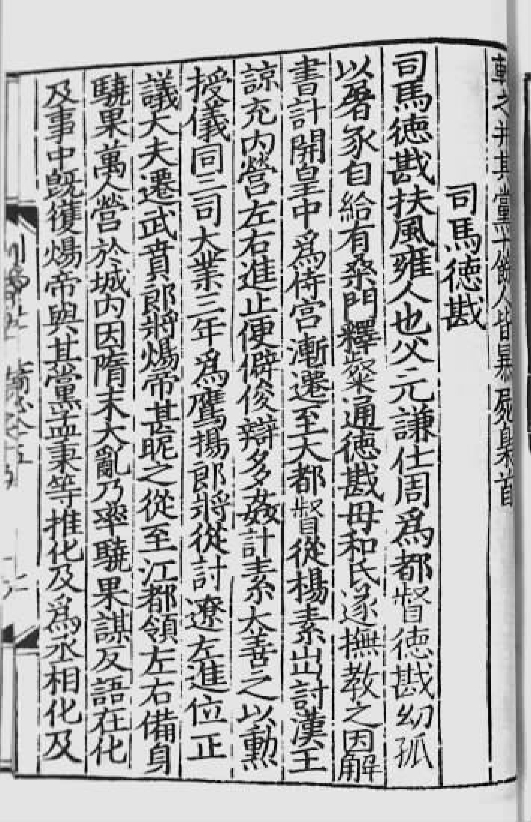 之并其黨十餘人皆暴屍梟首
司馬徳戡
司馬徳戡扶風雍人也父元謙仕周爲都督徳戡幼孤
以屠豕自給有桑門釋粲通徳戡母和氏遂撫教之因解
書計開皇中爲侍官漸遷至大都督從楊素出討漢王
諒充内營左右進止便僻俊辯多姦計素大善之以勲
授儀同三司大業三年爲鷹揚郎將從討遼左進位正
議大夫遷武賁郎將煬帝甚昵之從至江都領左右備身
驍果萬人營於城内因隋末大亂乃率驍果謀反語在化
及事中既獲煬帝與其黨孟秉等推化及爲丞相化及